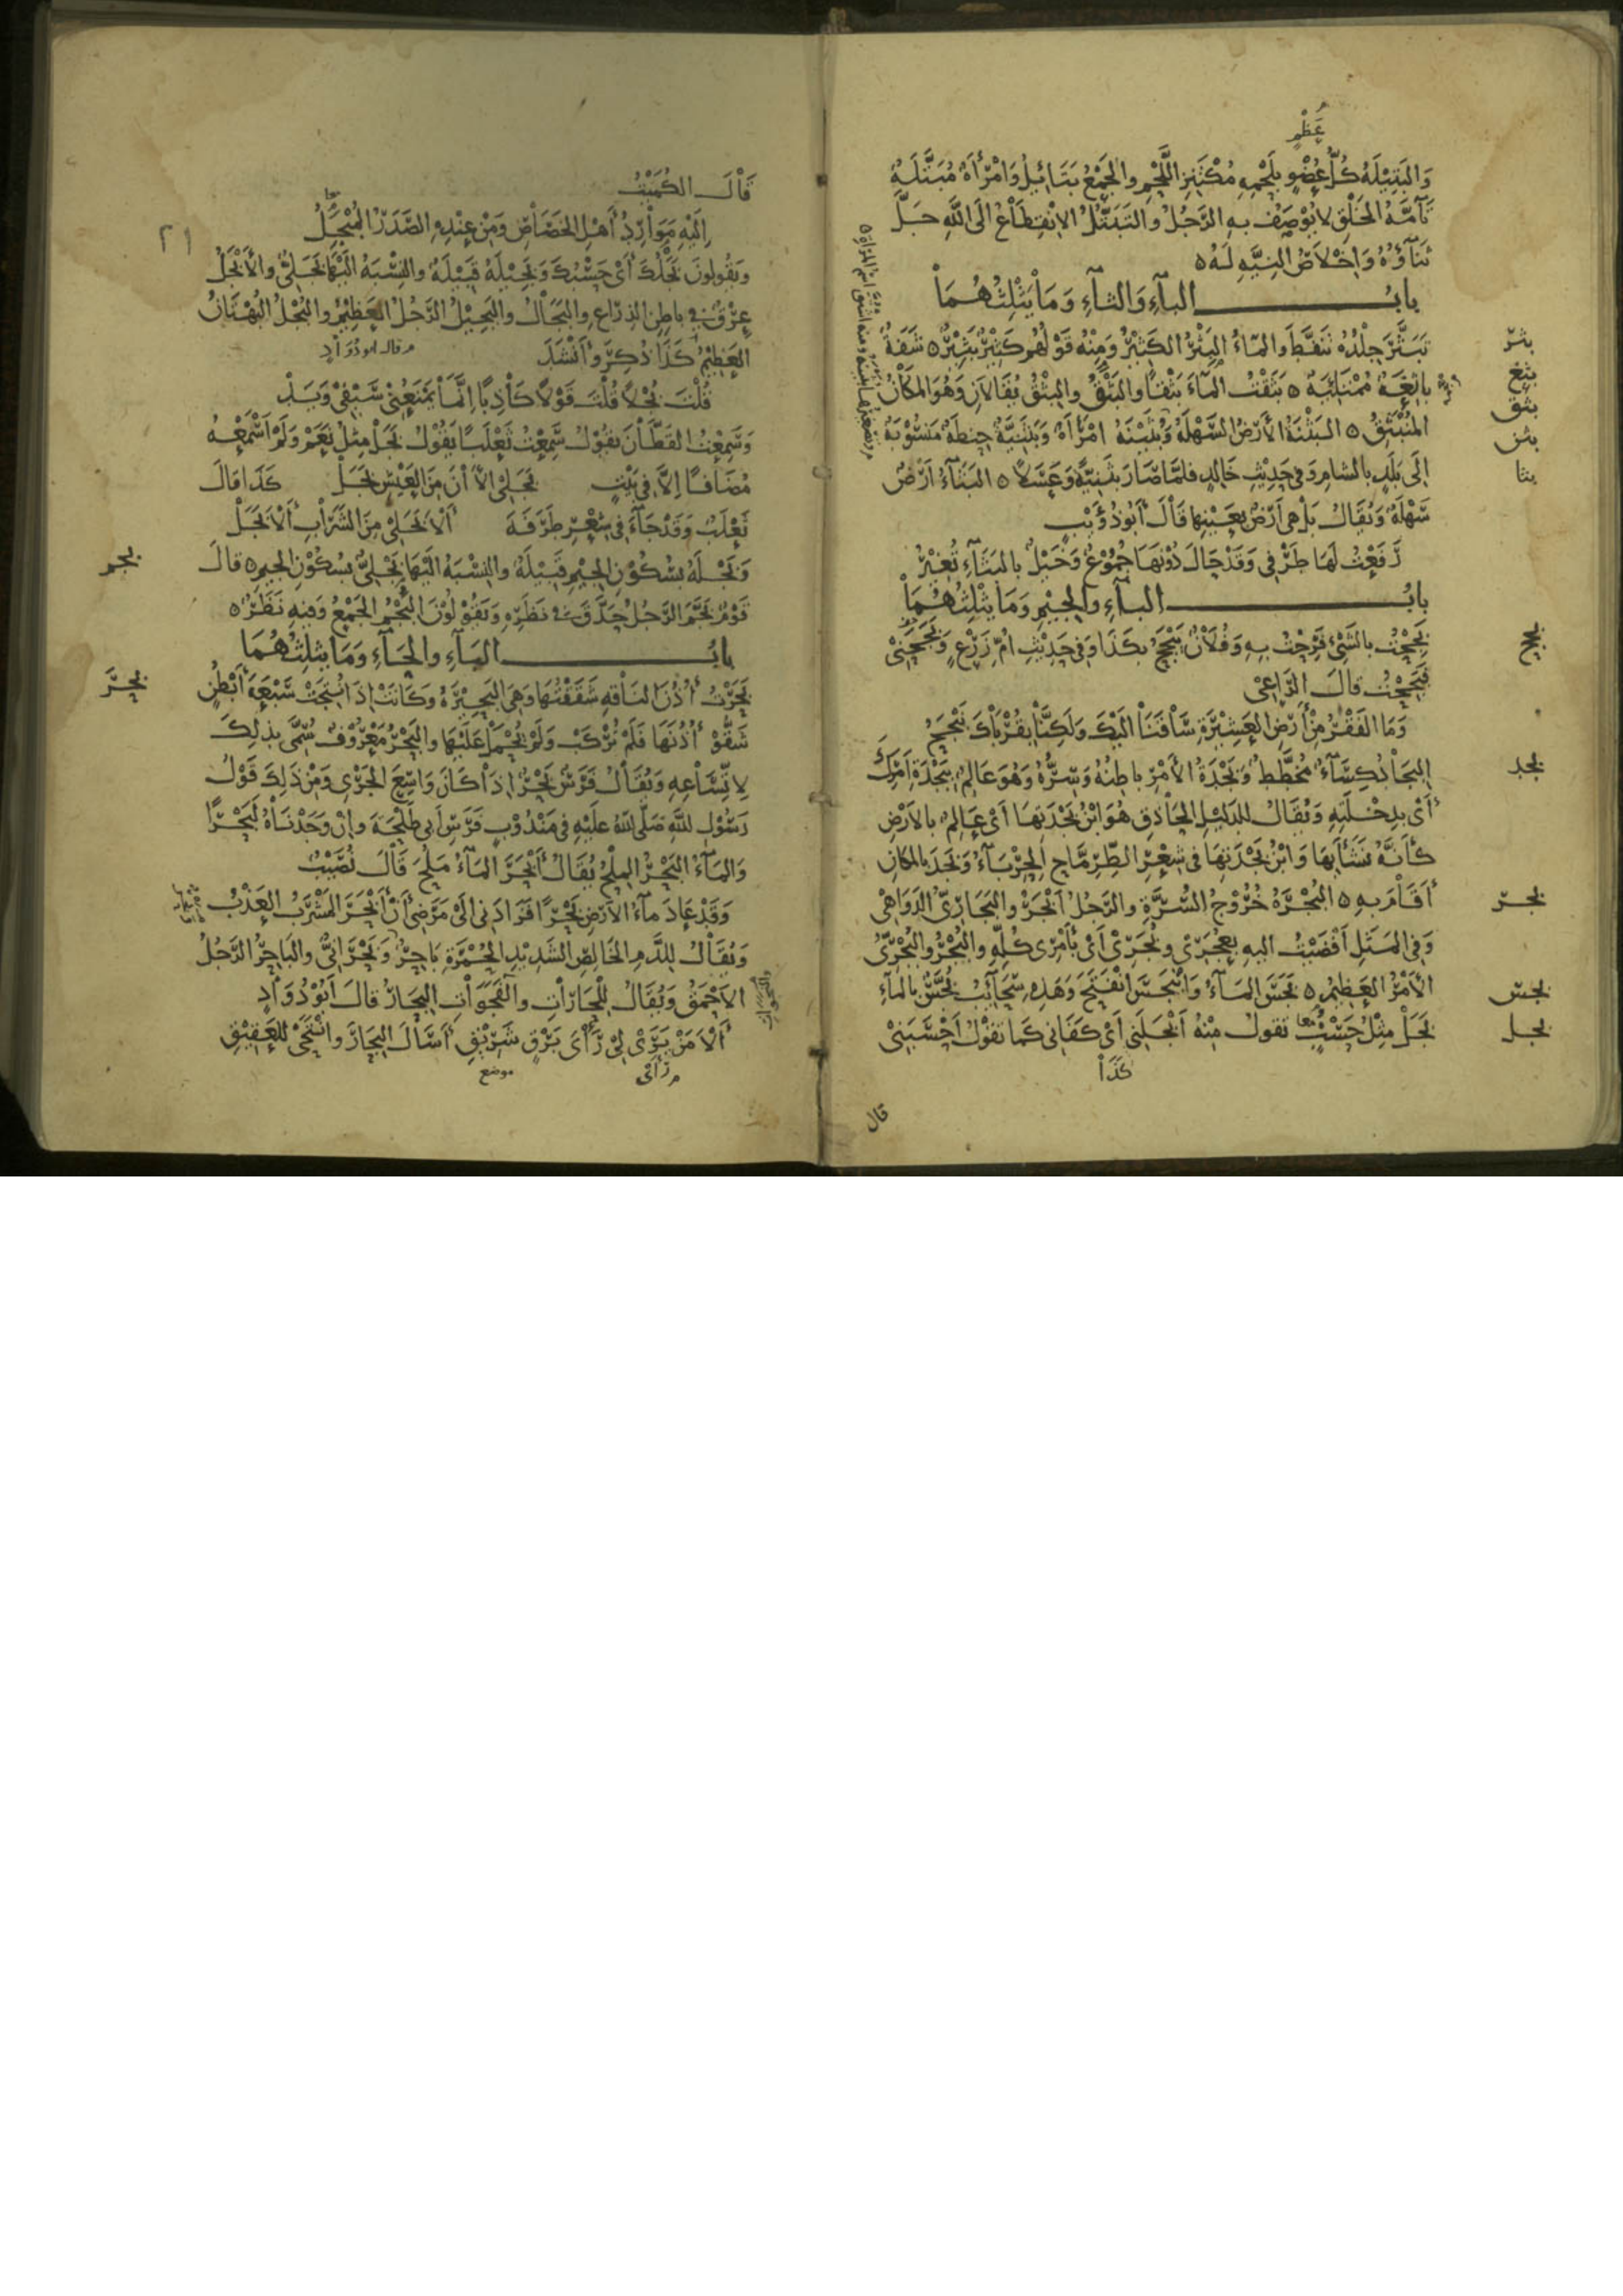 عَظْمٍ
وَالبَتِيْلَةُ كُلُّ عُضْوٍ بِلَحْمِهِ مُكْتَنِزِ اللَّحْمِ والجَمْعُ بَتَائِيلُ وَامْرَأَةٌ مُبَتَّلَةٌ
تَآمَّةُ الخَلْقِ لا يُوْصَفُ بِهِ الرَّجُلُ والتَبَتُّلُ الاِنْقِطَاعُ الَى اللَّهِ جَلَّ
ثَنَآؤُهُ وَاِخْلاَصُ النِيَّهِ لَهُ ٥
بابُ البآءِ وَالثآءِ وَمَا يَثْلِثُهُمَا
بثر
تَبَثَّرَ جِلْدُهُ تَنَفَّطَ وَالمَآءُ البَثْرُ الكَثِيْرُ وَمِنْهُ قَوْلُهُم كَثِيْرٌ بَثِيْرٌ ٥ شَفَةٌ
بثغ
بَاثِغَةٌ مُمْتَلِئَةٌ ٥ بَثَقْتُ المآءَ بَثْقًا والبَثْقُ والبِثْقُ يُقَالاَنِ وَهُوَ المَكَانُ
بثق
المُنْبَثِقُ ٥ البَثْنَةُ الأَرْضُ السَّهْلَةُ وَبُثَيْنَةُ امْرَأَةٌ وَبَثَنِيَّةٌ حِنْطَةٌ مَنْسُوْبَةٌ
بثن
الَى بَلَدٍ بالشام وَفي حَدِيْثِ خَالِدٍ فلمَّا صَارَ بَثَنِيَّةً وَعَسَلاً ٥ البَثَآءُ اَرْضٌ
بثا
سَهْلَةٌ وَيُقَالُ بَلْ هِىَ اَرْضٌ بِعَيْنِهَا قَالَ أَبُو ذُؤَيْبٍ
رَفَعْتُ لَهَا طَرْفي وَقَدْ حَالَ دُوْنَهَا جُمُوْعٌ وَخَيْلٌ بالبَثَآءِ تُغِيْرُ
بابُ البآءِ والجِيْمِ وَمَا يَثْلِثُهُمَا
بجح
بَجِحْتُ بالشَّئِ فَرِحْتُ بِهِ وَفُلاَنٌ يَتَبَجَّحُ بِكَذَا وَفي حَدِيْثِ أُمِّ زَرْعٍ وَبَجَّحَنِيْ
فَبَجِحْتُ قالَ الرَّاعِيْ
وَمَا الفَقْرُ مِنْ أَرْضِ العَشِيْرَةِ سَاقَنَا الَيْكَ وَلَكِنَّا بِقُرْبَاكَ نَبْجَحُ
بجد
البِجَادُ كِسَآءٌ مُخَطَّطٌ وَبَجْدَةُ الأَمْرِ باطِنُهُ وَسِرُّهُ وَهُوَ عَالِمٌ بِبَجْدَةِ اَمْرِكَ
أَيْ بِدِخْلَتِهِ وَيُقَالُ للدَلِيْلِ الحَاذِقِ هُوَ ابْنُ بَجْدَتِهَا أَيْ عَالِمٌ بالأَرْضِ
كَأَنَّهُ نَشَأَ بِهَا وَابْنُ بَجْدَتِهَا في شِعْرِ الطِّرِمَّاحِ الحِرْبَآءُ وَبَجَدَ بالمَكَانِ
أَقَامَ بِهِ ٥ البُجْرَةُ خُرُوْجُ السُّرَّةِ والرَّجُلُ اَبْجَرُ والبَجَارِىُّ الدَوَاهِيْ
بجر
وَفِي المَثَلِ اَفْضَيْتُ اليهِ بِعُجَرِيْ وَبُجَرِيْ اَيْ بأَمْرِي كُلِّهِ والبُجْرُ والبُجْرِىُّ
الأَمْرُ العَظِيْمُ ٥ بَجَسَ المَآءُ وَانْبَجَسَ انْفَتَحَ وَهَذِهِ سَحَآئِبُ بُجَّسٌ بالمآءِ
بجس
بَجَلْ مِثْلُ حَسْبُ تقولُ مِنْهُ اَبْجَلَنِي أَيْ كَفَانِي كَمَا تَقُوْلُ اَحْسَبَنِيْ
معا
بجل
كَذَا
قال
٢١
قَالَ الكُمَيْتُ
اِلَيْهِ مَوَارِدُ أَهْلِ الخَصَاصِ وَمِنْ عِنْدِهِ الصَّدَرُ المُبْجِلُ
معا
وَيَقُولُونَ بَجْلُكَ أَيْ حَسْبُكَ وَبَجِيْلَةُ قَبِيْلَةٌ والنِسْبَةُ الَيْهَا بَجَلِيٌّ والأَبْجَلُ
عِرْقٌ في باطِنِ الذِرَاعِ والبَجَالُ والبَجِيْلُ الرَّجُلُ العَظِيْمُ والبُجْلُ البُهْتَانُ
العَظِيْمُ كَذَا ذُكِرَ وَاَنْشَدَ
م قال ابو دُوَادٍ
قُلْتَ بُجْلاً قُلْتَ قَوْلاً كَاذِبًا اِنَّمَا يَمْنَعُنِيْ سَيْفِيْ وَيَدْ
وَسَمِعْتُ القَطَّانَ يَقُوْلُ سَمِعْتُ ثَعْلَبًا يَقُوْلُ بَجَلْ مِثْلُ نَعَمْ وَلَمْ اَسْمَعْهُ
مُضَافًا اِلاَّ في بَيْتٍ بَجَلِيْ الاْنَ مِنَ العَيْشِ بَجَلْ كَذَا قَالَ
ثَعْلَبٌ وَقَدْ جَآءَ في شِعْرِ طَرَفَةَ أَلاَ بَجَلِيْ مِنَ الشَّرَابِ أَلاَ بَجَلْ
وَبَجْلَةُ بسُكُوْنِ الجِيْمِ قَبِيْلَةٌ والنِسْبَةُ الَيْهَا بَجْلِيٌّ بسُكُوْنِ الجيمِ ٥ قالَ
بجم
قَوْمٌ بَجَّمَ الرَّجُلُ حَدَّقَ في نَظَرِهِ وَيَقُوْلُوْنَ البَجْمُ الجَمْعُ وَفيهِ نَظَرٌ ٥
بابُ البآءِ والحَآءِ وَمَا يثلِثُهُمَا
بحر
بَحَرْتُ أُذُنَ النَاقَهِ شَقَقْتُهَا وَهِيَ البَحِيْرَةُ وَكَانَتْ اِذَا نُتِجَتْ سَبْعَةَ أَبْطُنٍ
شَقُّوْ أُذُنَهَا فَلَمْ تُرْكَبْ وَلَمْ يُحْمَلْ عَلَيْهَا والبَحْرُ مَعْرُوْفٌ سُمِّيَ بذلِكَ
لاِتِّسَاعِهِ وَيُقَالُ فَرَسٌ بَحْرٌ اِذَا كَانَ وَاسِعَ الجَرْيِ وَمِنْ ذَلِكَ قَوْلُ
رَسُوْلِ اللَّهِ صَلَّى اللهُ عَلَيْهِ في مَنْدُوْبٍ فَرَسِ اَبِي طَلْحَةَ وانْ وَجَدْنَاهُ لَبَحْرًا
وَالمَآءُ البَحْرُ المِلْحُ يُقَالُ أَبْحَرَ المَآءُ مَلُحَ قَالَ نُصَيْبٌ
وَقَدْ عَادَ مآءُ الأَرْضِ بَحْرًا فَزَادَنِي اِلَىْ مَرَضِيْ أَنْ أَبْحَرَ المَشْرَبُ العَذْبُ
وَيُقَالُ للدَّمِ الخَالِصِ الشَدِيْدِ الحُمْرَةِ بَاحِرٌ وَبَحْرَانِيٌّ والبَاحِرُ الرَّجُلُ
الاَحْمَقُ وَيُقَالُ لِلْبَحَارَانِ والفَجَوَاتِ البِحَارُ قالَ اَبُوْ دُوَادٍ
أَلاَ مَنْ يَرَىْ لِيْ رَأْىَ بَرْقٍ شَرِيْقٍ أَسَالَ البِحَارَ وانْتَحَىْ للعَقِيْقِ
م رَأَىْ
موضع